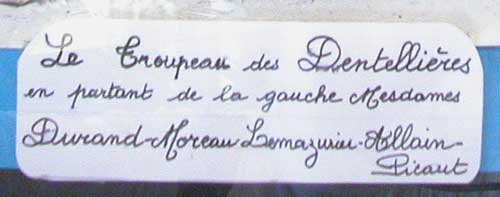 Le Troupeau des Dentellières
en partant de la gauche Mesdames
Durand-Moreau Lemazurier-Allain-
Picaut